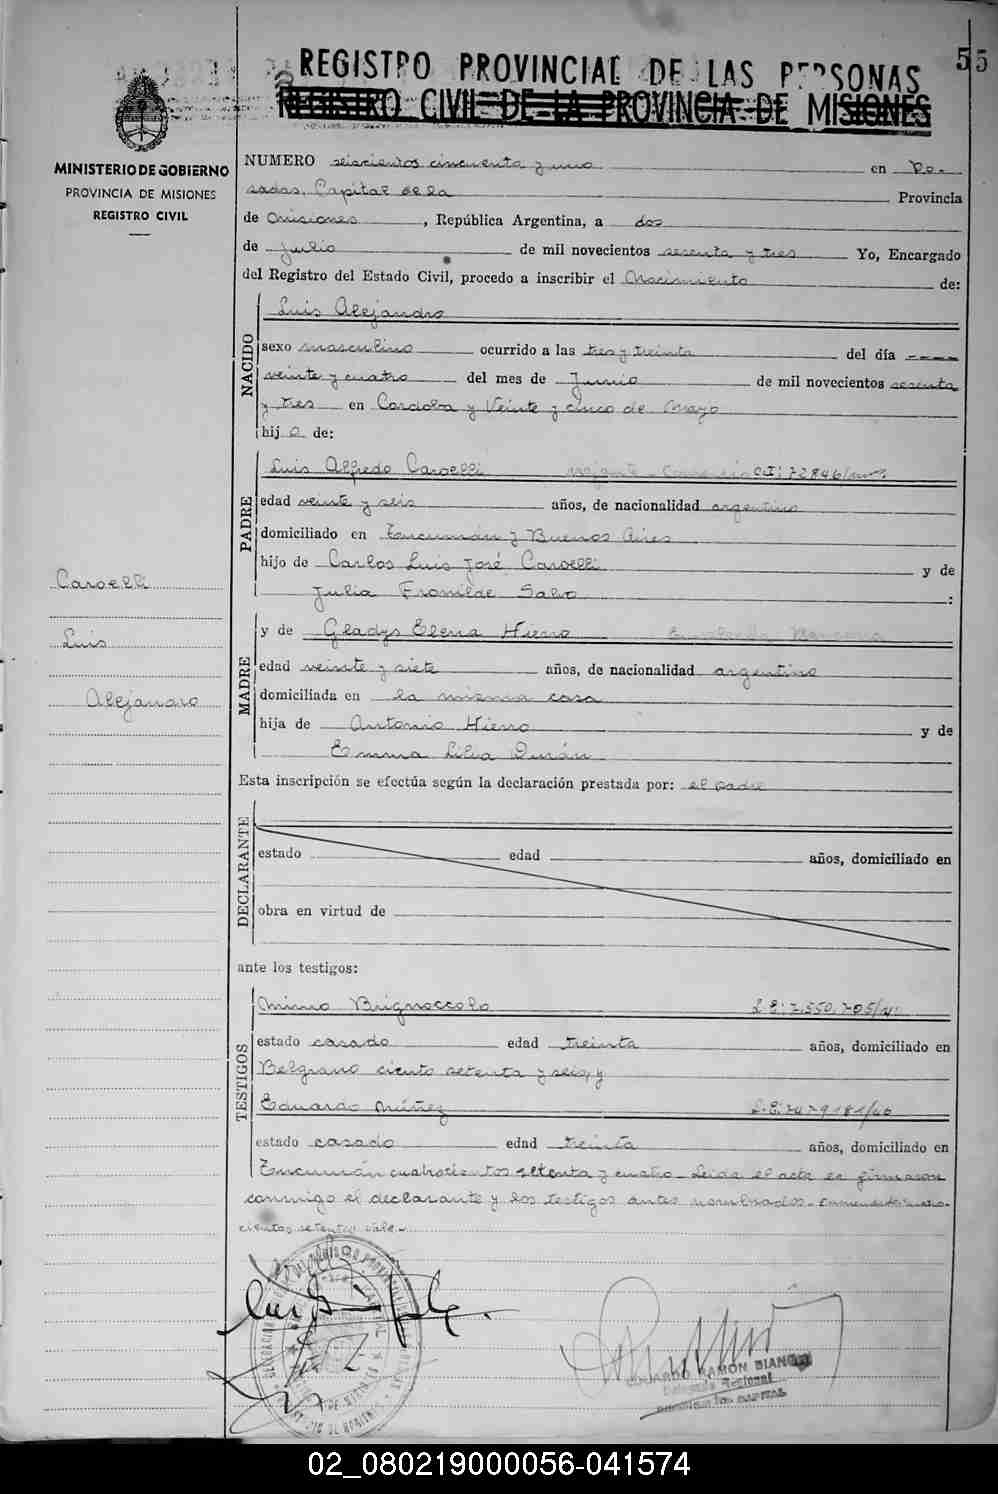 55
REGISTRO PROVINCIAL DE LAS PERSONAS
REGISTRO CIVIL DE LA PROVINCIA DE MISIONES
MINISTERIO DE GOBIERNO
PROVINCIA DE MISIONES
REGISTRO CIVIL
NUMERO seiscientos cincuenta y uno en Po-
sadas, Capital de la Provincia
de Misiones, República Argentina, a dos
de Julio de mil novecientos sesenta y tres Yo, Encargado
del Registro del Estado Civil, procedo a inscribir el Nacimiento de:
NACIDO
Luis Alejandro
sexo masculino ocurrido a las tres y treinta del día
veinte y cuatro del mes de Junio de mil novecientos sesenta
y tres en Cordoba y Veinte y cinco de Mayo
hij o de:
PADRE
Luis Alfredo Caroelli
edad veinte y seis años, de nacionalidad argentino
domiciliado en Tucumán y Buenos Aires
hijo de Carlos Luis José Caroelli y de
Julia Fronilde Salvo :
MADRE
y de Gladys Elena Hierro
edad veinte y siete años, de nacionalidad argentina
domiciliada en la misma casa
hija de Antonio Hierro y de
Emma Lilia Durán
Caroelli
Luis
Alejandro
Esta inscripción se efectúa según la declaración prestada por: el padre
DECLARANTE
estado edad años, domiciliado en
obra en virtud de
ante los testigos:
TESTIGOS
Mimo Brignoccolo L.E: 7.550.705/
estado casado edad treinta años, domiciliado en
Belgrano ciento setenta y seis, y
Eduardo Núñez
estado casado edad treinta años, domiciliado en
Tucumán cuatrocientos setenta y cuatro. Leida el acta la firmaron
conmigo el declarante y los testigos antes nombrados.
cientos setenta, vale.
EDUARDO RAMÓN BIANCHI
Delegado Regional
02_080219000056-041574